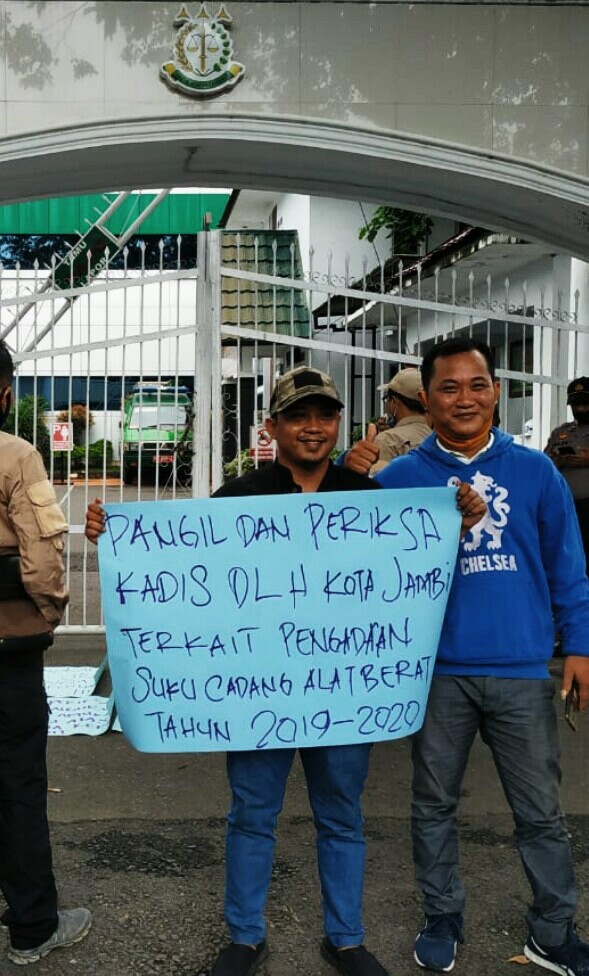 PANGIL DAN PERIKSA
KADIS DLH KOTA JAMBI
TERKAIT PENGADAAN
SUKU CADANG ALAT BERAT
TAHUN 2019-2020
CHELSEA